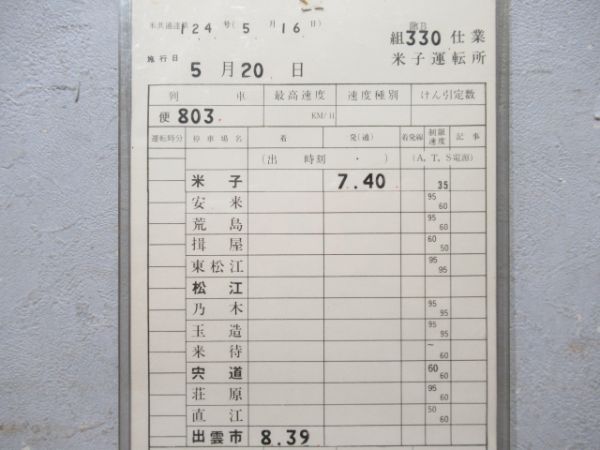 米共通達第 124 号(5月16日)
組330仕業
施行日 5月20日
米子運転所
列車 最高速度 速度種別 けん引定数
便 803 KM/H
運転時分 停車場名 着 発(通) 着発線 制限速度 記事
(出 時刻 ・ ) (A.T.S電源)
米子 7.40 35
安来 95 60
荒島 95 60
揖屋 60 50
東松江 95 95
松江
乃木 95 95
玉造 95 95
来待 ~ 60
宍道 60 60
荘原 95 60
直江 50 60
出雲市 8.39